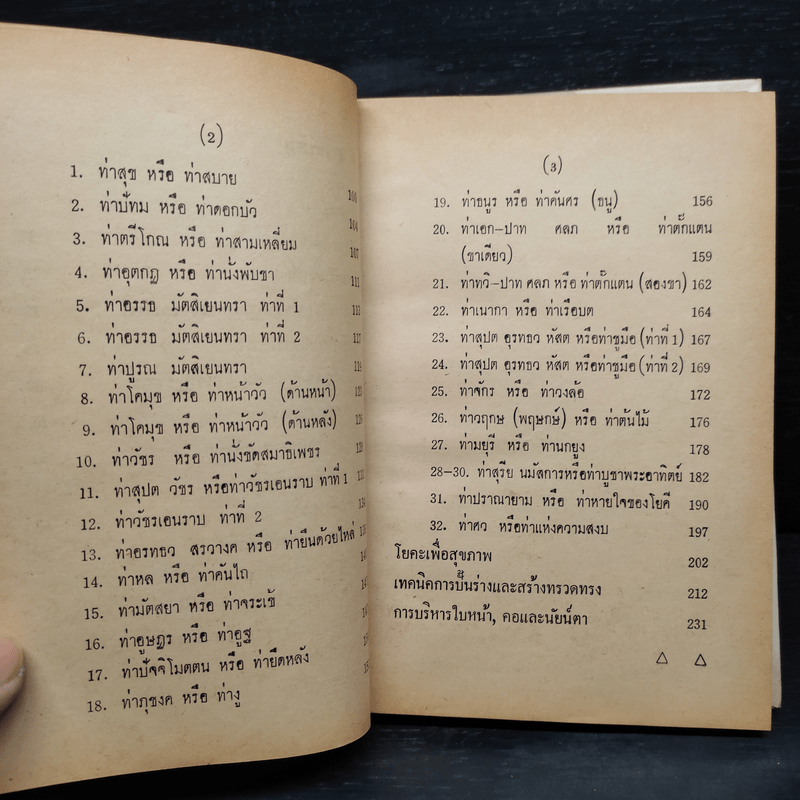 (2)
1. ท่าสุข หรือ ท่าสบาย
2. ท่าปัทม หรือ ท่าดอกบัว 104
3. ท่าตรีโกณ หรือ ท่าสามเหลี่ยม 107
4. ท่าอุตกฏ หรือ ท่านั่งพับขา 111
5. ท่าอรรธ มัตสิเยนทรา ท่าที่ 1
6. ท่าอรรธ มัตสิเยนทรา ท่าที่ 2
7. ท่าปูรณ มัตสิเยนทรา
8. ท่าโคมุข หรือ ท่าหน้าวัว (ด้านหน้า)
9. ท่าโคมุข หรือ ท่าหน้าวัว (ด้านหลัง)
10. ท่าวัชร หรือ ท่านั่งขัดสมาธิเพชร
11. ท่าสุปต วัชร หรือท่าวัชรเอนราบ ท่าที่ 1
12. ท่าวัชรเอนราบ ท่าที่ 2
13. ท่าอรทธว สรวางค หรือ ท่ายืนด้วยไหล่
14. ท่าหล หรือ ท่าคันไถ
15. ท่ามัตสยา หรือ ท่าจระเข้
16. ท่าอูษฎร หรือ ท่าอูฐ
17. ท่าปัจจิโมตตน หรือ ท่ายืดหลัง
18. ท่าภุชงค หรือ ท่างู
(3)
19. ท่าธนูร หรือ ท่าคันศร (ธนู) 156
20. ท่าเอก-ปาท ศลภ หรือ ท่าตั๊กแตน
(ขาเดียว) 159
21. ท่าทวิ-ปาท ศลภ หรือ ท่าตั๊กแตน (สองขา) 162
22. ท่าเนากา หรือ ท่าเรือบด 164
23. ท่าสุปต อุรทธว หัสต หรือท่าชูมือ (ท่าที่ 1) 167
24. ท่าสุปต อุรทธว หัสต หรือท่าชูมือ (ท่าที่ 2) 169
25. ท่าจักร หรือ ท่าวงล้อ 172
26. ท่าวฤกษ (พฤษกษ์) หรือ ท่าต้นไม้ 176
27. ท่ามยุรี หรือ ท่านกยูง 178
28-30. ท่าสุริย นมัสการหรือท่าบูชาพระอาทิตย์ 182
31. ท่าปราณายาม หรือ ท่าหายใจของโยคี 190
32. ท่าศว หรือท่าแห่งความสงบ 197
โยคะเพื่อสุขภาพ 202
เทคนิคการปั้นร่างและสร้างทรวดทรง 212
การบริหารใบหน้า, คอและนัยน์ตา 231